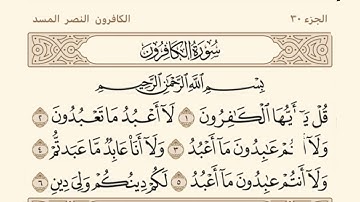 الجزء ٣٠ الكافرون النصر المسد
سُورَةُ الْكَافِرُونَ
بِسْمِ اللَّهِ الرَّحْمَٰنِ الرَّحِيمِ
قُلْ يَٰٓأَيُّهَا ٱلْكَٰفِرُونَ ١ لَآ أَعْبُدُ مَا تَعْبُدُونَ ٢
وَلَآ أَنتُمْ عَٰبِدُونَ مَآ أَعْبُدُ ٣ وَلَآ أَنَا۠ عَابِدٌ مَّا عَبَدتُّمْ ٤
وَلَآ أَنتُمْ عَٰبِدُونَ مَآ أَعْبُدُ ٥ لَكُمْ دِينُكُمْ وَلِىَ دِينِ ٦